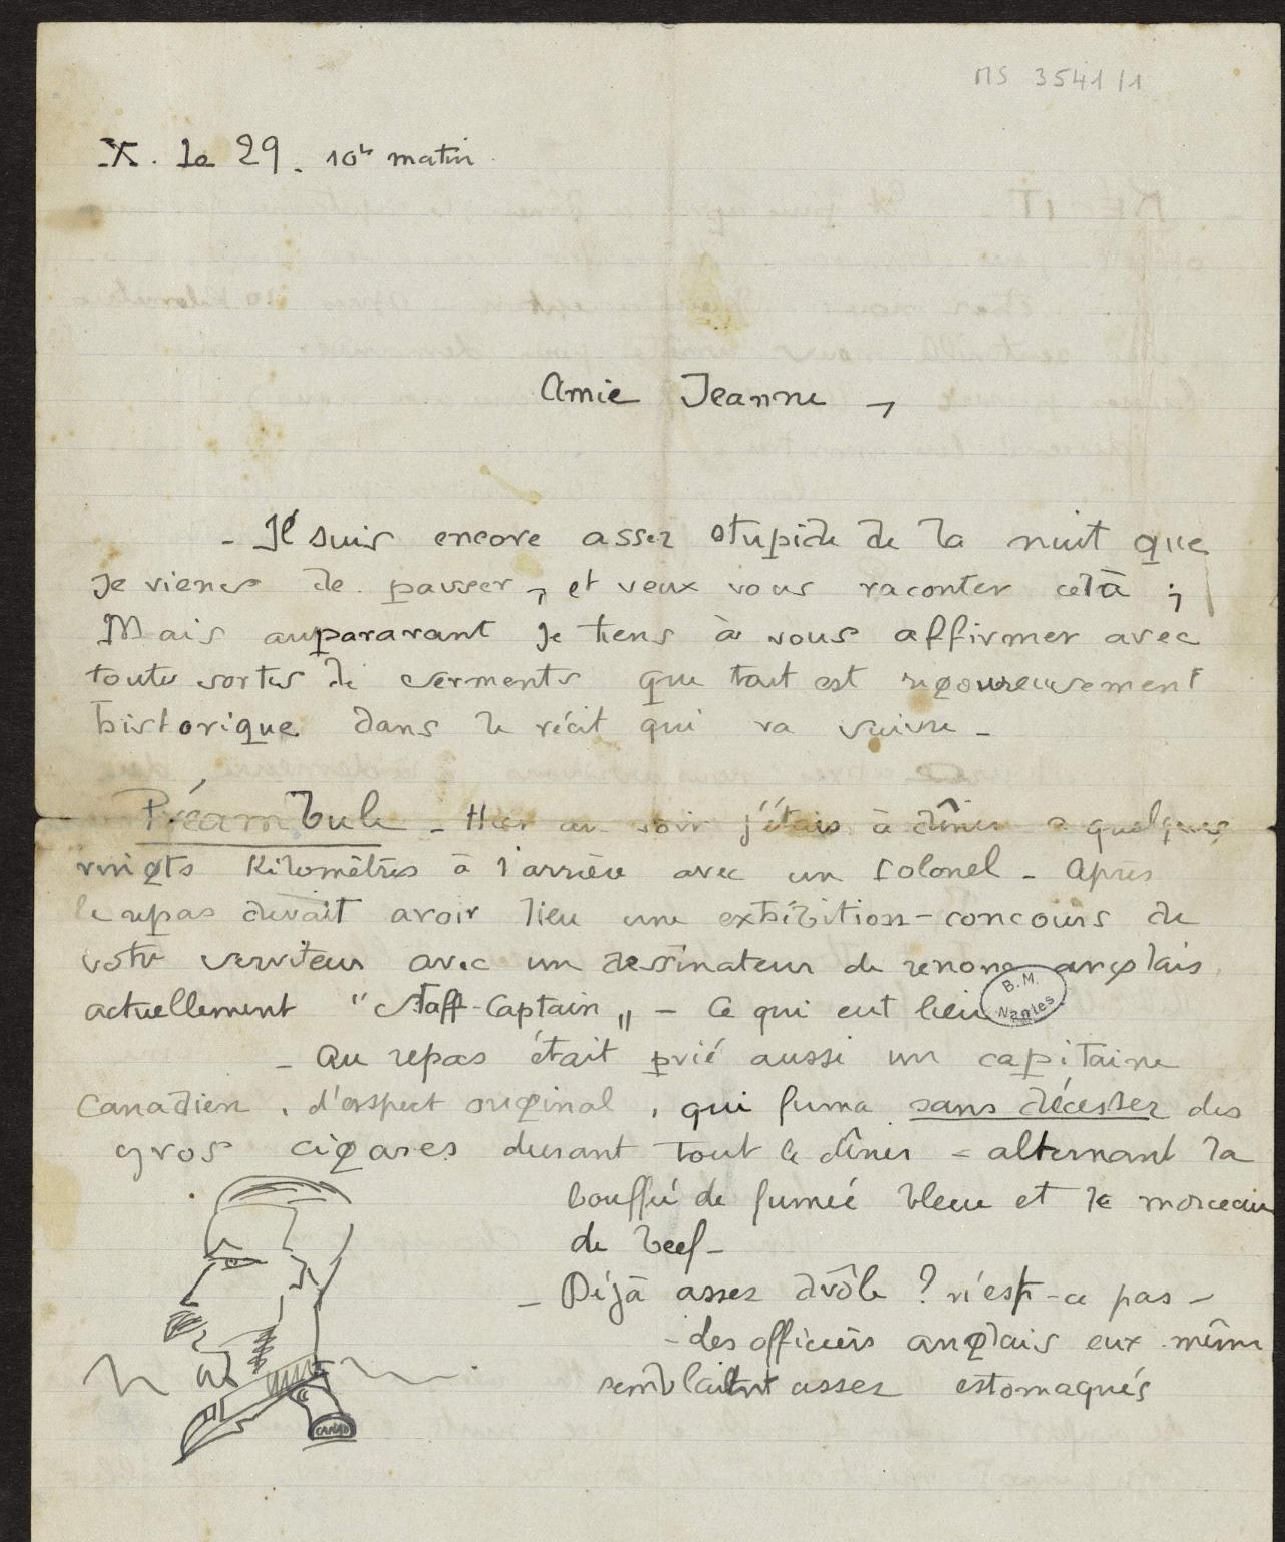 MS 3541/1
X. le 29. 10h matin
Amie Jeanne,
- Je suis encore assez stupide de la nuit que
je viens de passer, et veux vous raconter celà ;
Mais auparavant je tiens à vous affirmer avec
toutes sortes de serments que tout est rigoureusement
historique dans le récit qui va suivre -
Préambule - Hier au soir j'étais à dîner à quelques
vingts Kilomètres à l'arrière avec un Colonel - Après
le repas devait avoir lieu une exhibition-concours de
votre serviteur avec un dessinateur de renom anglais
actuellement "Staff-Captain„ - Ce qui eut lieu
B.M.
Nantes
- Au repas était prié aussi un capitaine
Canadien, d'aspect original, qui fuma sans décesser des
gros cigares durant tout le dîner = alternant la
bouffée de fumée bleue et le morceau
de beef -
- Déjà assez drôle ? n'est-ce pas -
- des officiers anglais eux même
semblaient assez estomaqués
CANAD